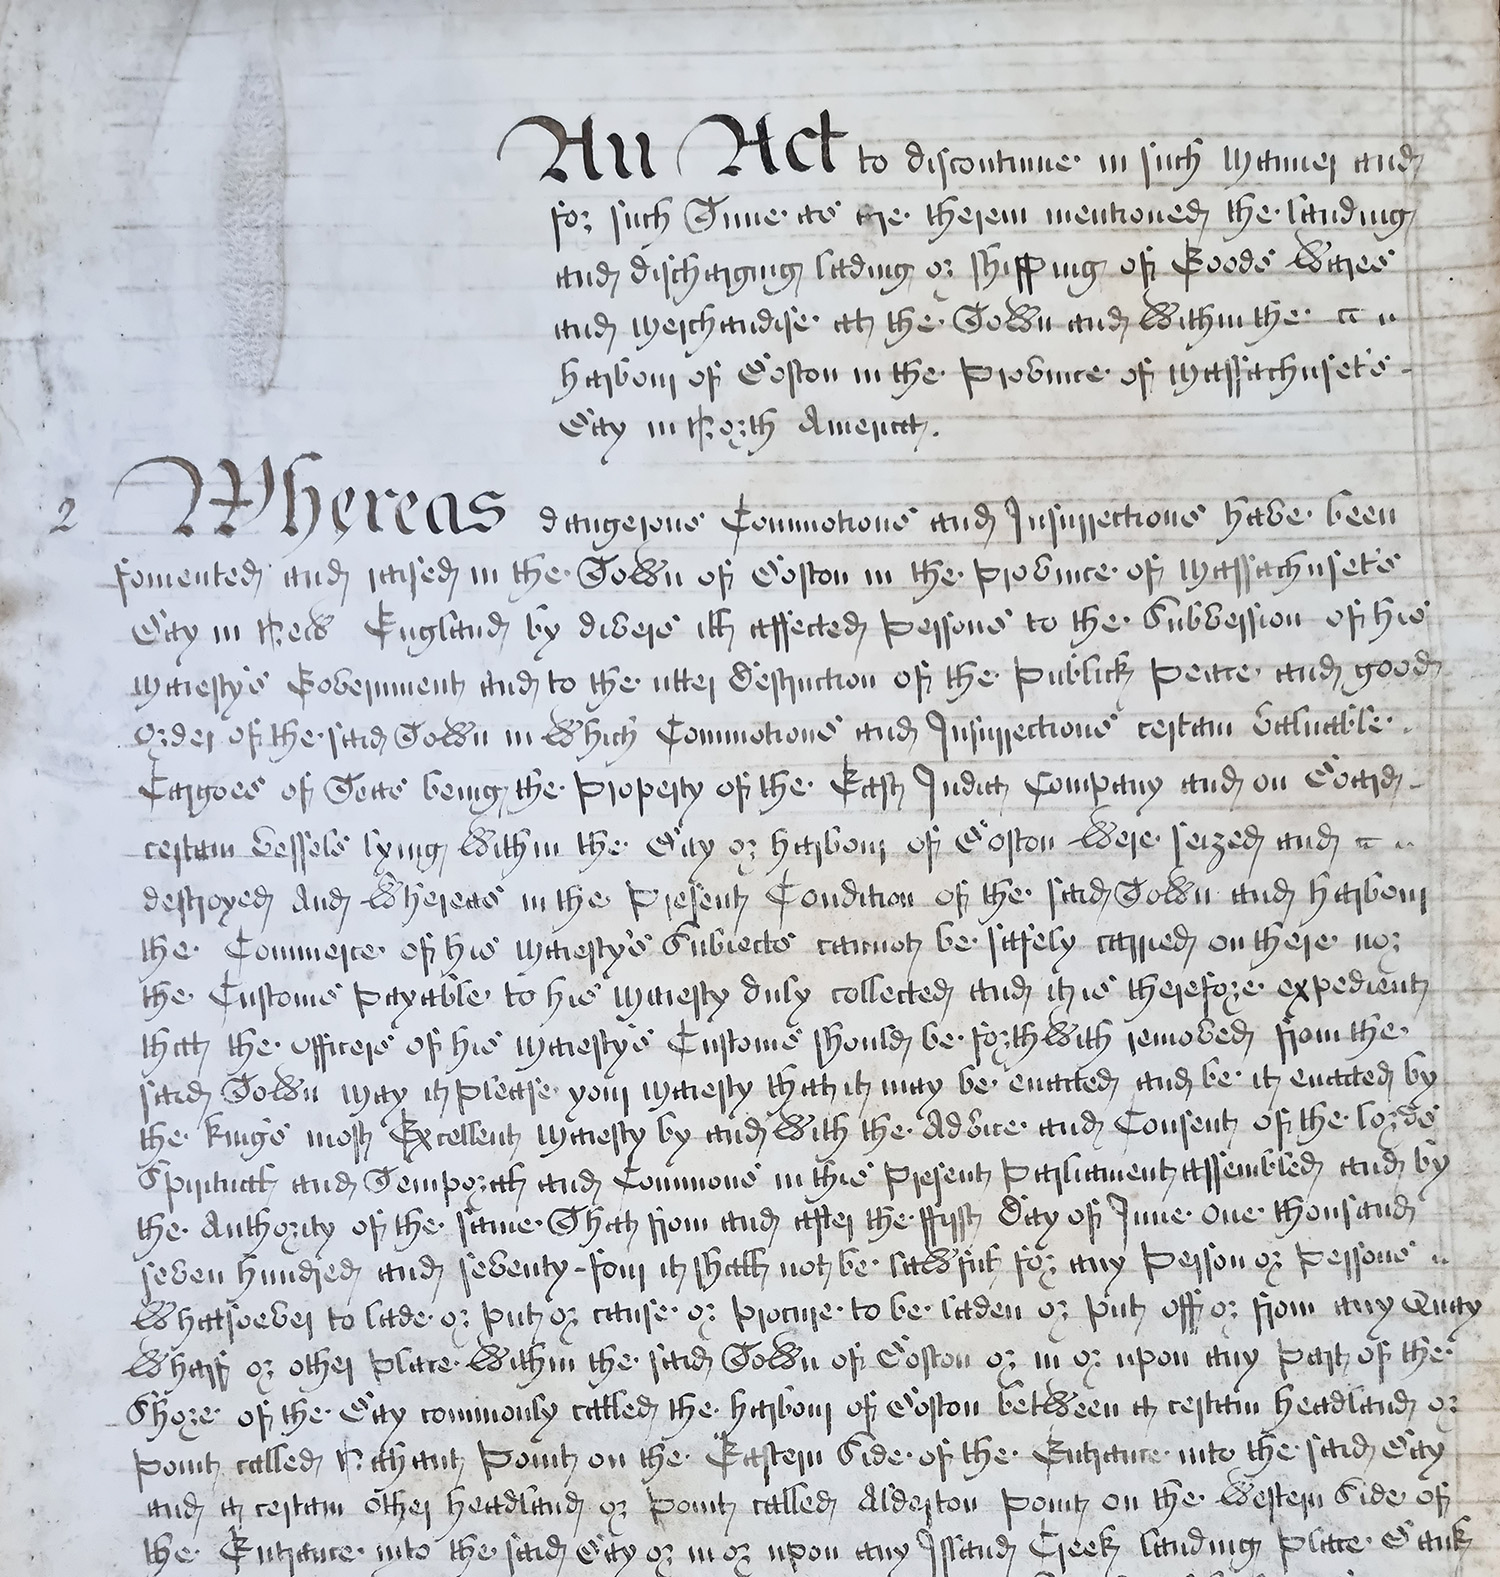 An Act to discontinue in such Manner and
for such Time as are therein mentioned the landing
and discharging lading or shipping of Goods Wares
and Merchandise at the Town and within the
Harbour of Boston in the Province of Massachuset's
Bay in North America.
2 Whereas dangerous Commotions and Insurrections have been
fomented and raised in the Town of Boston in the Province of Massachuset's
Bay in New England by divers ill affected Persons to the Subversion of his
Majesty's Government and to the utter Destruction of the Publick Peace and good
Order of the said Town in which Commotions and Insurrections certain valuable
Cargoes of Teas being the Property of the East India Company and on Board
certain Vessels lying within the Bay or Harbour of Boston were seized and
destroyed And Whereas in the Present Condition of the said Town and Harbour
the Commerce of his Majesty's Subjects cannot be safely carried on there nor
the Customs payable to his Majesty duly collected and it is therefore expedient
that the Officers of his Majesty's Customs should be forthwith removed from the
said Town May it please your Majesty that it may be enacted and be it enacted by
the Kings most Excellent Majesty by and with the Advice and Consent of the Lords
Spiritual and Temporal and Commons in this Present Parliament assembled and by
the Authority of the same That from and after the ffirst Day of June One thousand
seven hundred and seventy-four it shall not be lawful for any Person or Persons
whatsoever to lade or put or cause or procure to be laden or put off or from any Quay
Wharf or other Place within the said Town of Boston or in or upon any Part of the
Shore of the Bay commonly called the Harbour of Boston between a certain Headland or
Point called Nahant Point on the Eastern Side of the Entrance into the said Bay
and a certain other Headland or Point called Alderton Point on the Western Side of
the Entrance into the said Bay or in or upon any Island Creek Landing Place Bank